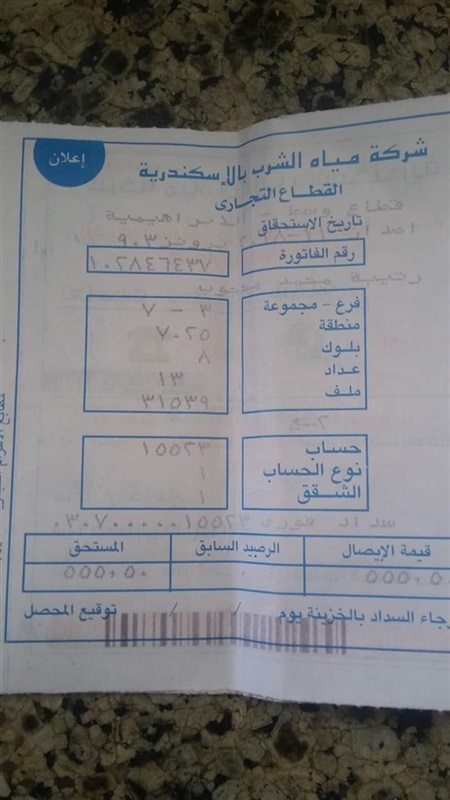 إعلان
شركة مياه الشرب بالإسكندرية
القطاع التجارى
تاريخ الاستحقاق
رقم الفاتورة ٧٣٤٦٤٨٢٠١
فرع - مجموعة ٣ - ٧
منطقة ٧٠٢٥
بلوك ٨
عداد ١٣
ملف ٣١٥٣٩
حساب ١٥٥٢٣
نوع الحساب ١
الشقق ١
سداد فورى ٠٣٠٧٠٠٠٠٠٠١٥٥٢٣
قيمة الإيصال الرصيد السابق المستحق
٥٥٥,٥ ٠ ٥٥٥,٥٠
رجاء السداد بالخزينة يوم / / توقيع المحصل